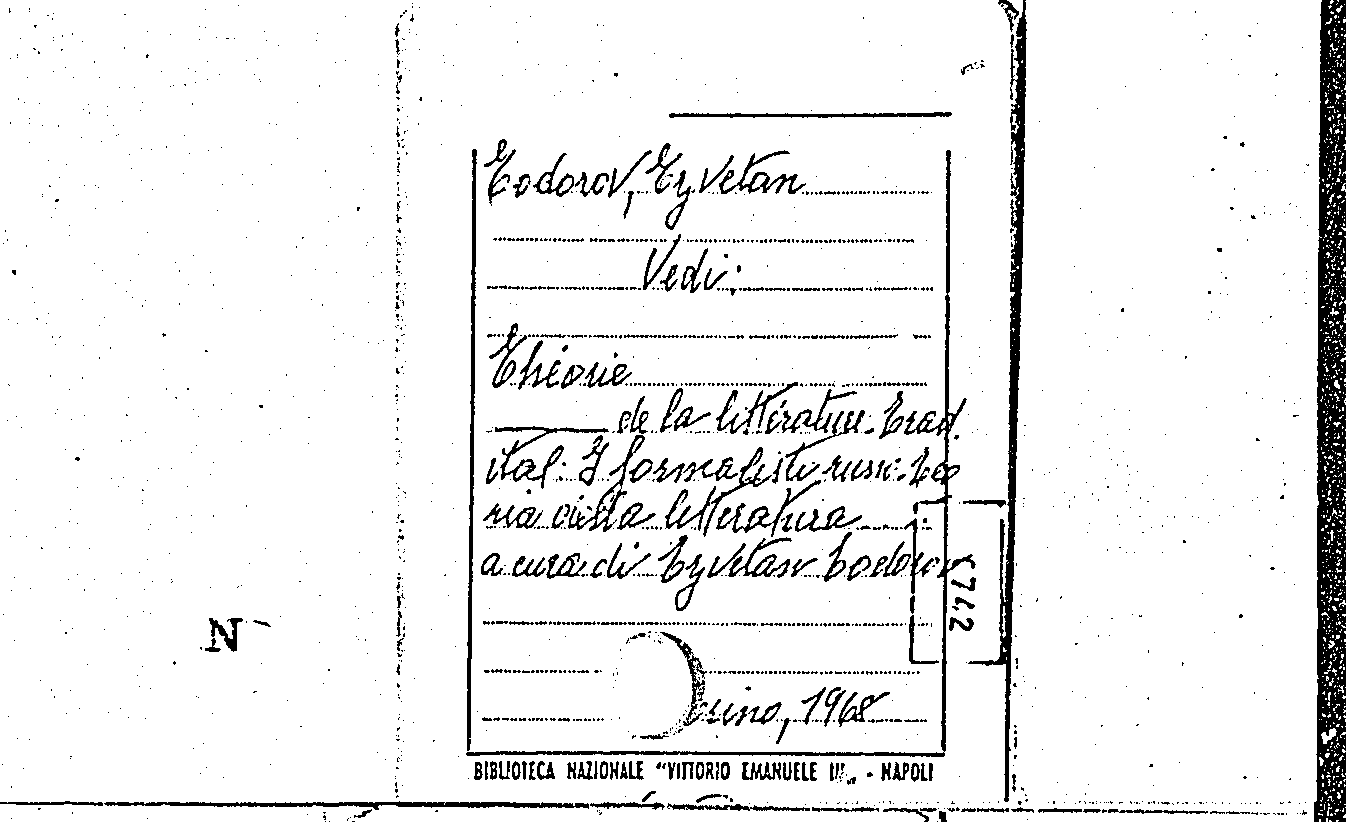 Todorov, Tzvetan
Vedi:
Théorie
de la littérature. Trad.
ital: I formalisti russi. Teo
ria della letteratura
a cura di Tzvetan Todorov
orino, 1968
N
BIBLIOTECA NAZIONALE "VITTORIO EMANUELE III„ - NAPOLI